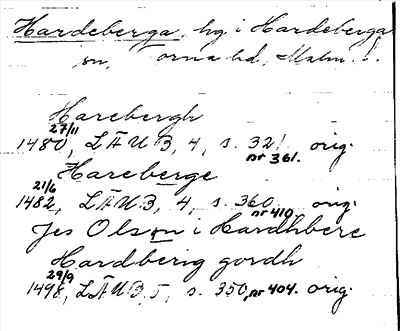 Hardeberga, hg i Hardeberga
sn, Torna hd, Malm. l.
Harebergh
1480 27/11, LÄUB, 4, s. 321 nr 361. orig.
Hareberge
1482 21/6, LÄUB, 4, s. 360, nr 410, orig.
Jes Olson i Hardhberc
Hardberig gordh
1498 29/9, LÄUB. 5, s. 350, nr 404. orig.